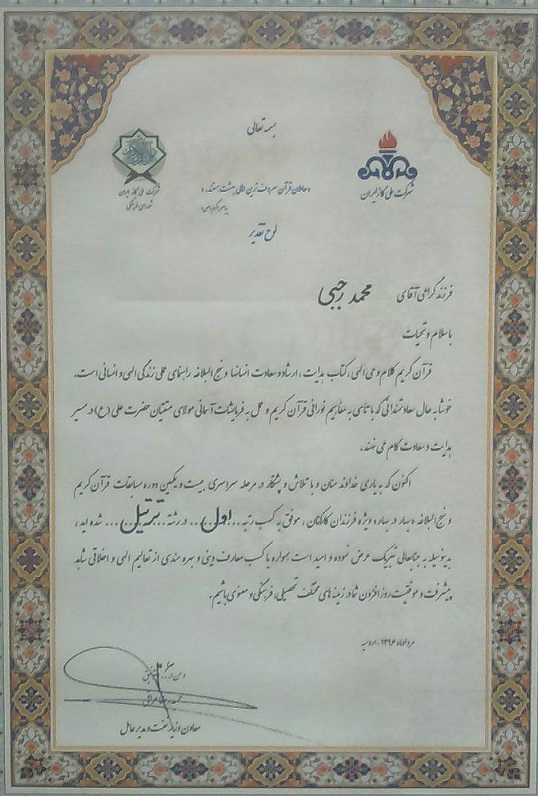 بسمه تعالی
شرکت ملی گاز ایران
شرکت ملی گاز ایران
شورای فرهنگی
«حاملان قرآن معروف ترین اهالی بهشت هستند.»
پیامبر اکرم (ص)
لوح تقدیر
فرزند گرامی آقای محمد رجبی
با سلام و تحیات
قرآن کریم کلام وحی الهی، کتاب هدایت، ارشاد و سعادت انسانها و نهج البلاغه راهنمای عملی زندگی الهی و انسانی است.
خوشا به حال سعادتمندانی که با تاسی به مفاهیم نورانی قرآن کریم و عمل به فرمایشات آسمانی مولای متقیان حضرت علی (ع) در مسیر
هدایت و سعادت گام می نهند.
اکنون که به یاری خداوند منان و با تلاش و پشتکار در مرحله سراسری بیست و یکمین دوره مسابقات قرآن کریم
و نهج البلاغه «بهار در بهار» ویژه فرزندان کارکنان، موفق به کسب رتبه ...اول... در رشته ...ترتیل... شده اید،
بدینوسیله به جنابعالی تبریک عرض نموده و امید است همواره با کسب معارف دینی و بهره مندی از تعالیم الهی و اخلاقی شاهد
پیشرفت و موفقیت روزافزون شما در زمینه های مختلف تحصیلی، فرهنگی و معنوی باشیم.
مرداد ماه ۱۳۹۶-ارومیه
حمیدرضا عراقی
معاون وزیر نفت و مدیرعامل